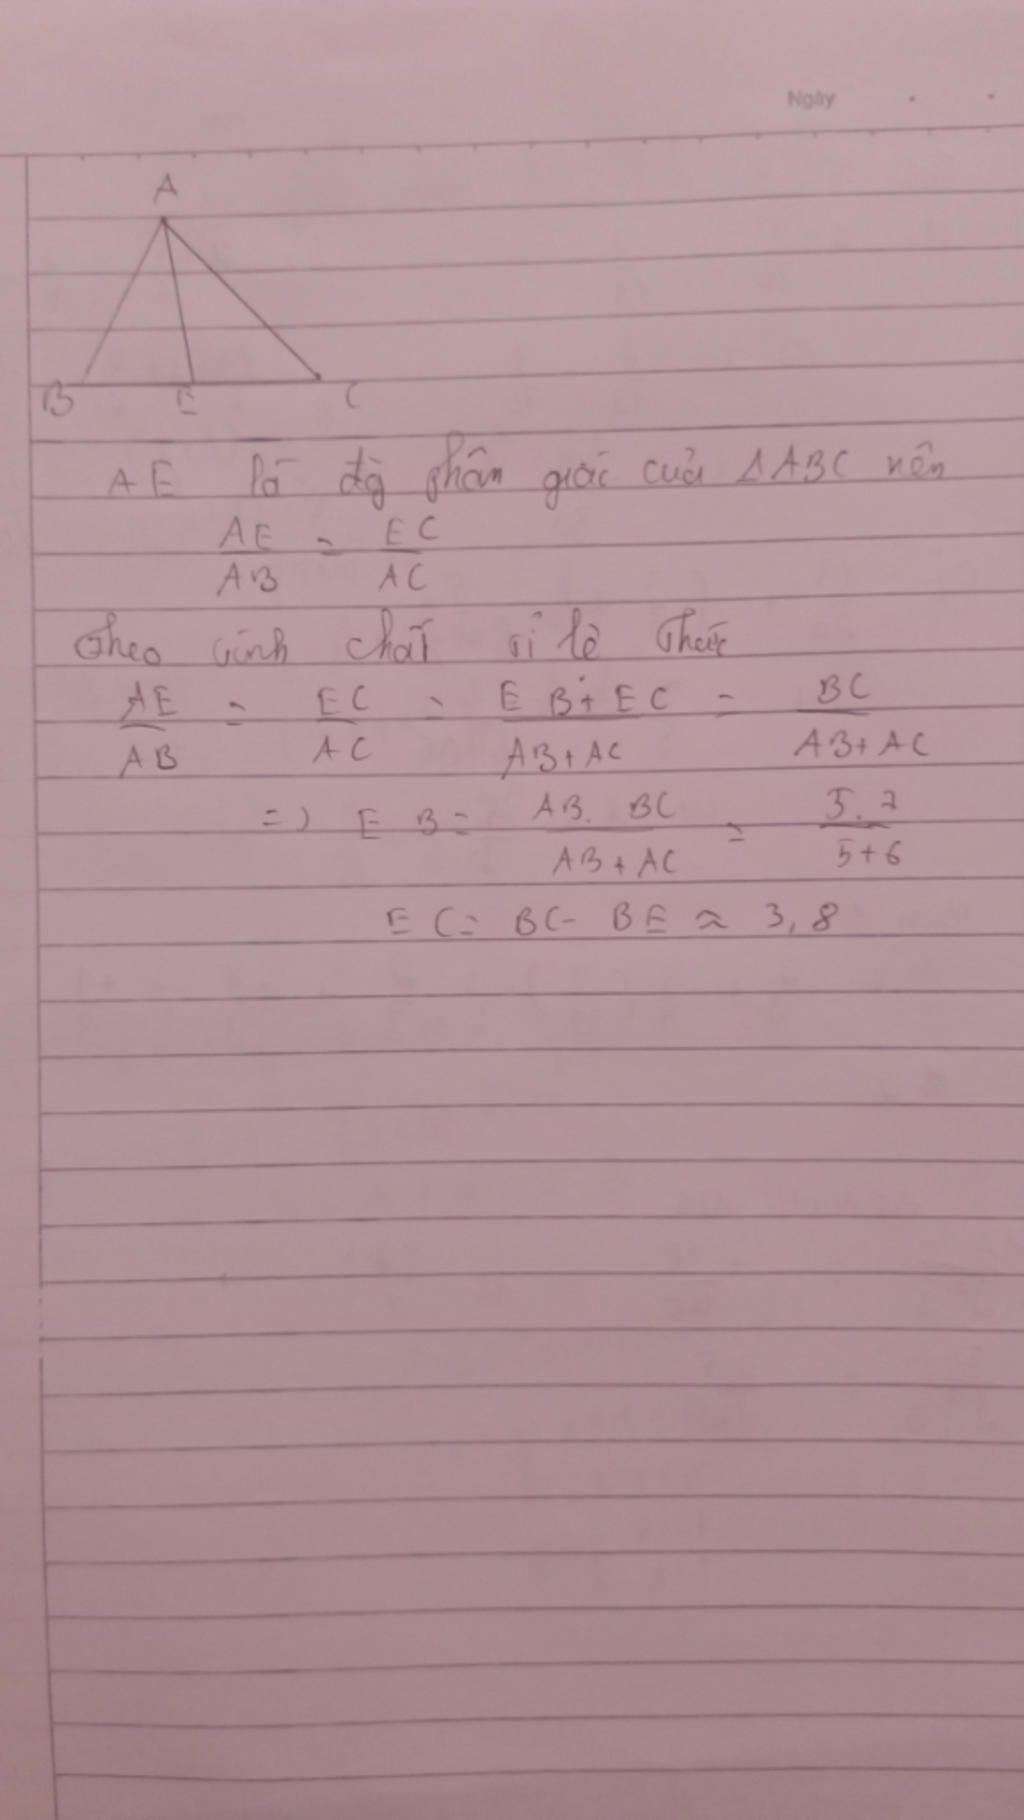 Ngày
A
B E C
AE là đg phân giác của ΔABC nên
AE/AB = EC/AC
Theo tính chất tỉ lệ thức
AE/AB = EC/AC = EB+EC/AB+AC = BC/AB+AC
=) EB = AB.BC/AB+AC = 5.7/5+6
EC = BC - BE ≈ 3,8